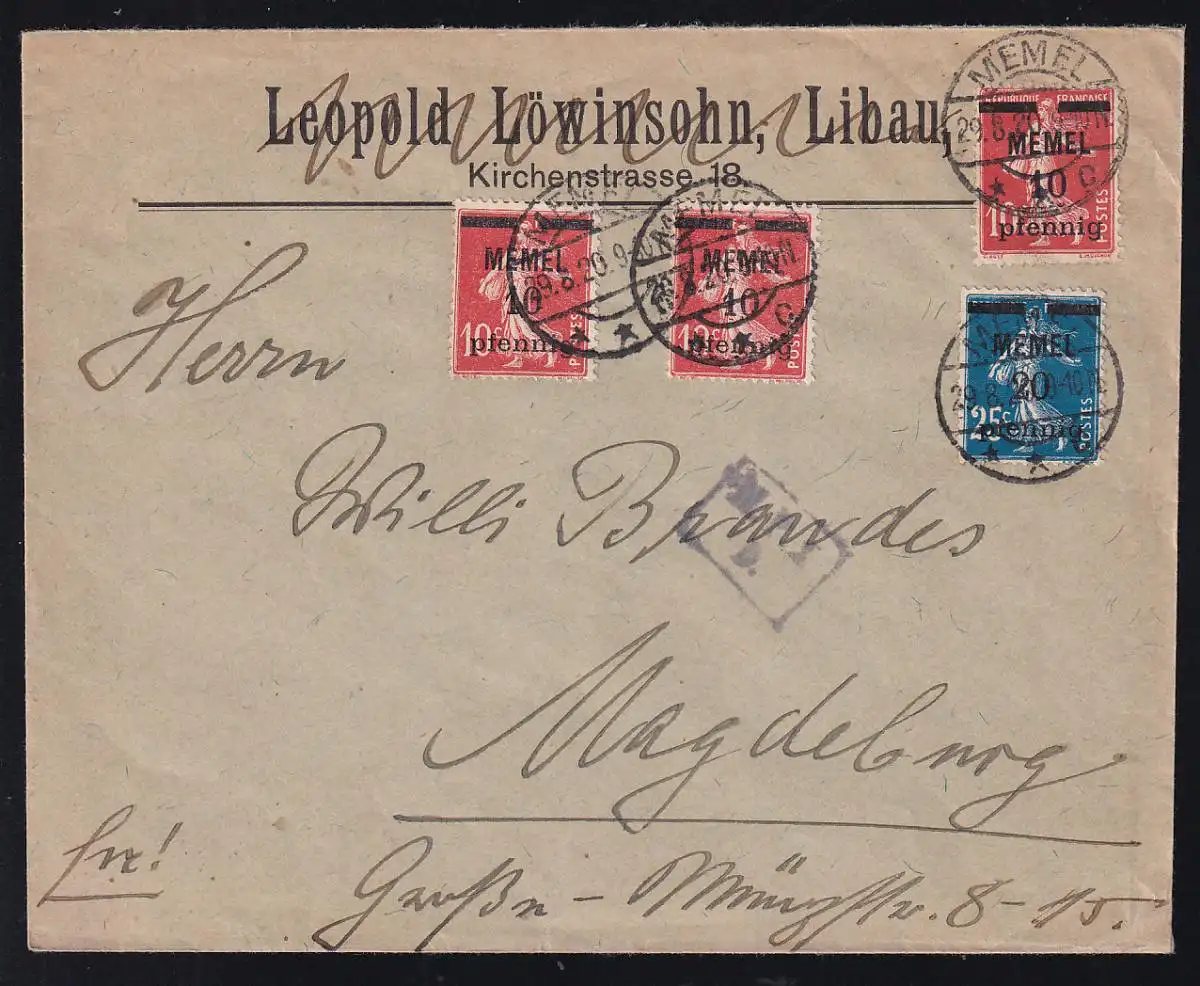 Leopold Löwinsohn, Libau,
Kirchenstrasse 18.
MEMEL
29.8.20
C
RÉPUBLIQUE FRANÇAISE
MEMEL
10
pfennig
POSTES
MEMEL
29.8.20.9
MEMEL
10
pfennig
10c
POSTES
MEMEL
C
MEMEL
10
pfennig
10c
POSTES
MEMEL
20
pfennig
25c
POSTES
Herrn
Willi Brandes
Magdeburg
Große-Münzstr. 8-15.